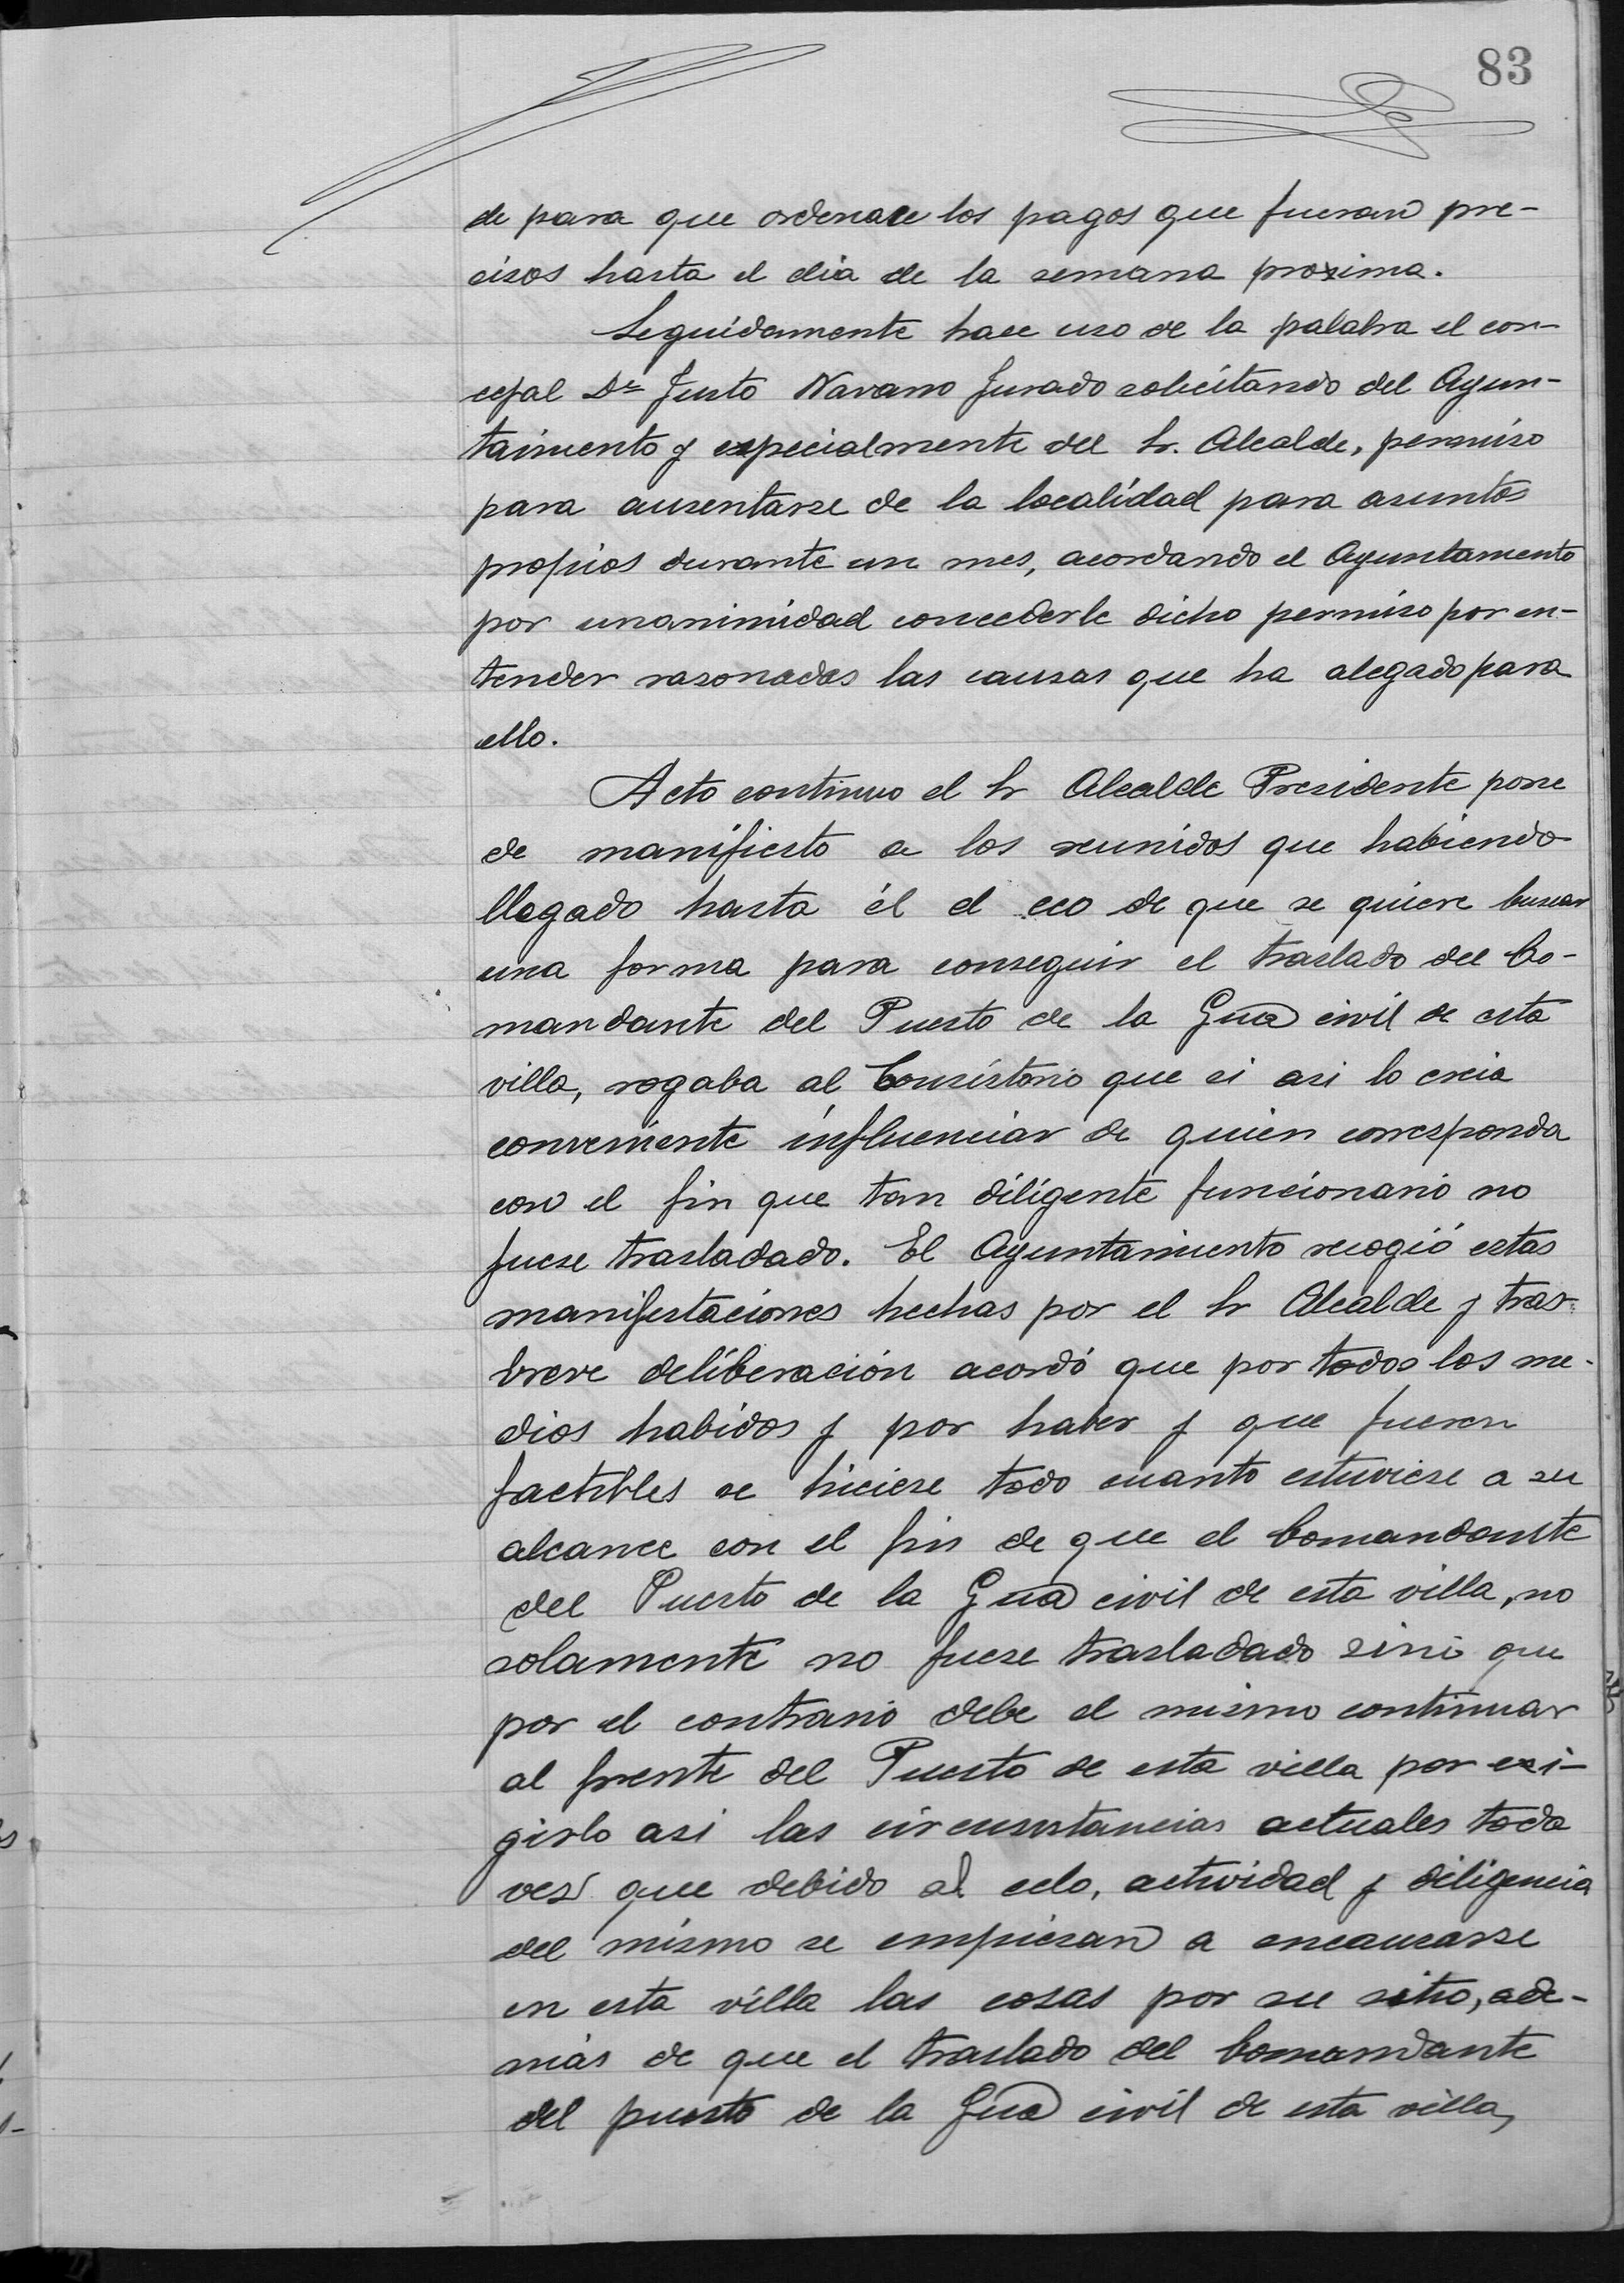 83
de para que ordenase los pagos que fueran pre-
cisos hasta el dia de la semana proxima.
Seguidamente hace uso de la palabra el con-
cejal Dn Justo Navarro Jurado solicitando del Ayun-
taimento y especialmente del Sr. Alcalde, permiso
para ausentarse de la localidad para asuntos
propios durante un mes, acordando el Ayuntamento
por unanimidad concederle dicho permiso por en-
tender rasonadas las causas que ha alegado para
ello.
Acto continuo el Sr Alcalde Presidente pone
de manifiesto a los reunidos que habiendo
llegado hasta él el eco de que se quiere buscar
una forma para conseguir el traslado del Co-
mandante del Puesto de la Gua civil de esta
villa, rogaba al Consistorio que si asi lo creia
conveniente influenciar de quien corresponda
con el fin que tan diligente funcionario no
fuese trasladado. El Ayuntamiento recogió estas
manifestaciones hechas por el Sr Alcalde y tras
breve deliberación acordó que por todos los me-
dios habidos y por haber y que fueren
factibles se hiciese todo cuanto estuviese a su
alcance con el fin de que el Comandante
del Puesto de la Gua civil de esta villa, no
solamente no fuese trasladado sinó que
por el contrario debe el mismo continuar
al frente del Puesto de esta villa por exi-
girlo asi las circunstancias actuales toda
ves que debido al celo, actividad y diligencia
del mismo se empiesan a encaucarse
en esta villa las cosas por su sitio, ade-
más de que el traslado del Comandante
del puesto de la Gua civil de esta villa,